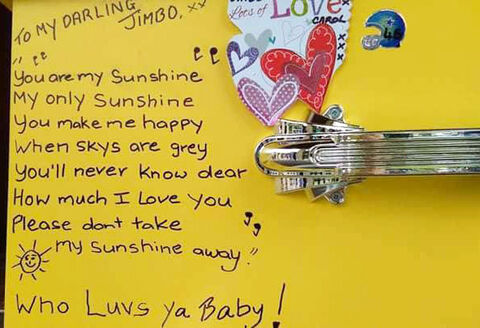 TO MY DARLING
JIMBO. xx
"You are my Sunshine
My only Sunshine
You make me happy
When skys are grey
You'll never know dear
How much I Love you
Please dont take
my Sunshine away."
Who Luvs ya Baby!
Lots of
Love
CAROL
xxx